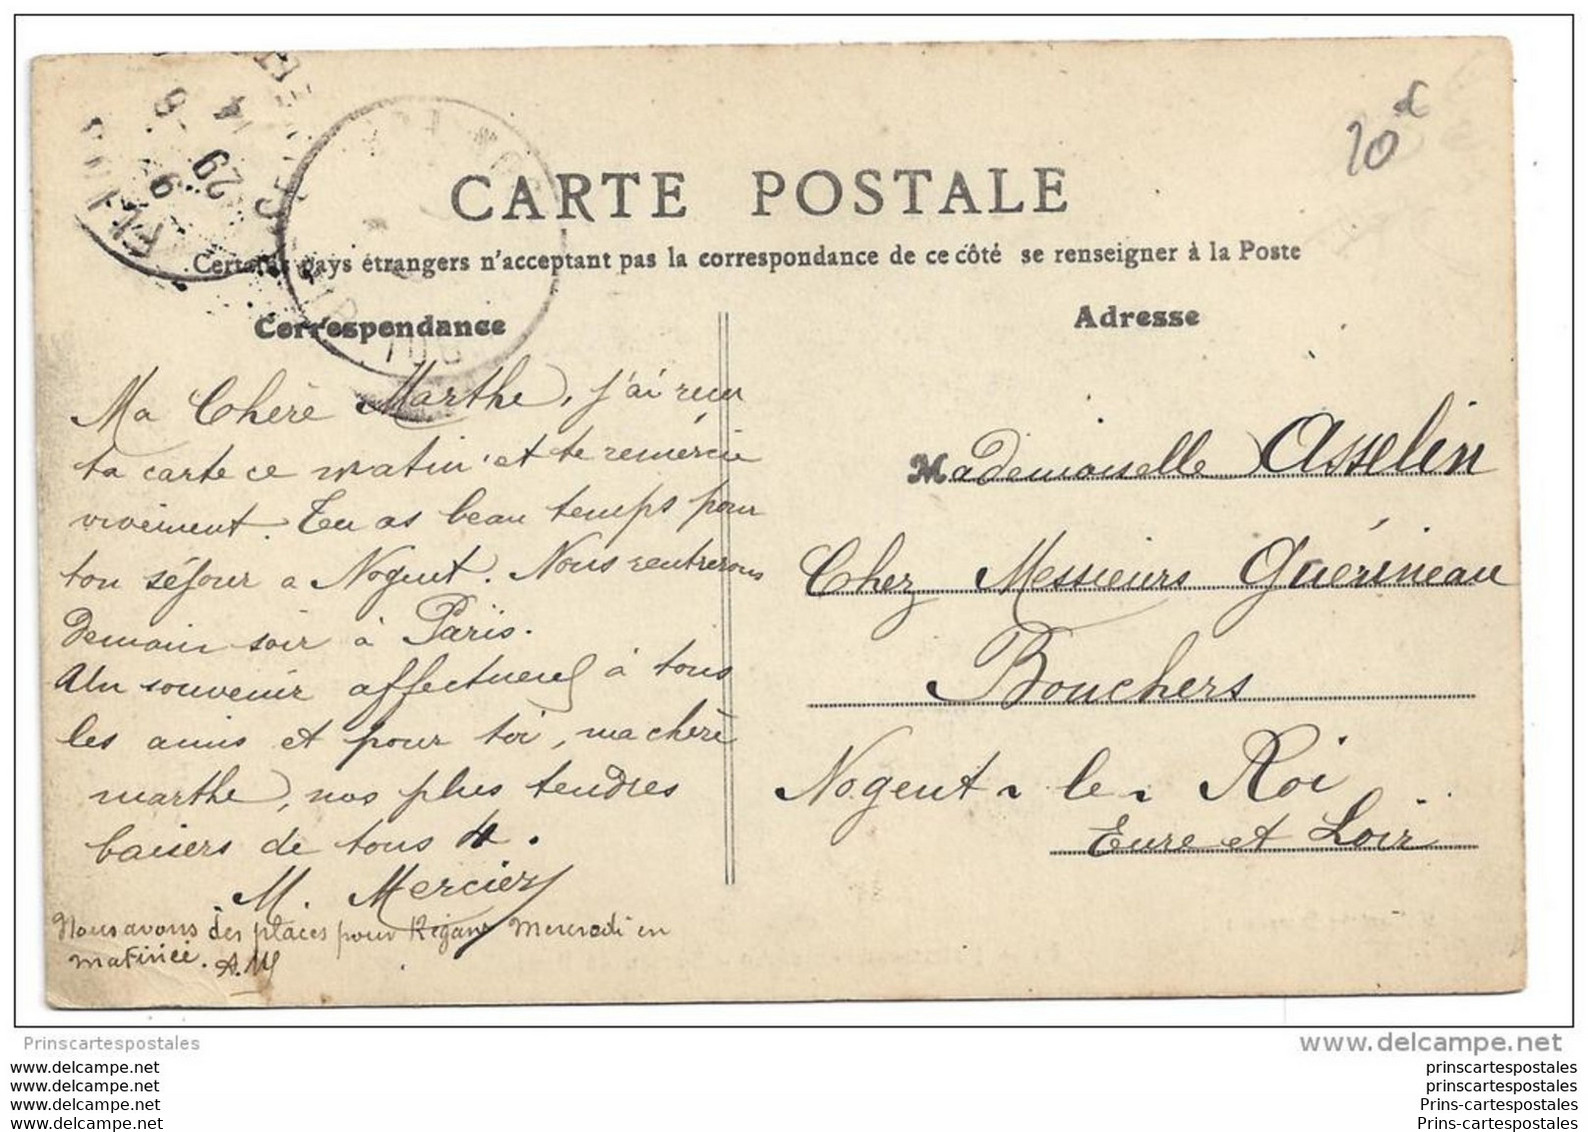 20€
CARTE POSTALE
Certains pays étrangers n'acceptant pas la correspondance de ce côté se renseigner à la Poste
Correspondance
Ma Chère Marthe, j'ai reçu
ta carte ce matin et te remercie
vivement. Tu as beau temps pour
ton séjour a Nogent. Nous rentrerons
Demain soir à Paris.
Un souvenir affectueux à tous
les amis et pour toi, ma chère
marthe, nos plus tendres
baisers de tous 4.
M. Mercier
Nous avons des places pour Mercredi en
matinée. A.M
Adresse
Mademoiselle Asselin
Chez Messieurs Guérineau
Bouchers
Nogent-le-Roi
Eure et Loir
29
Prinscartespostales
www.delcampe.net
www.delcampe.net
www.delcampe.net
www.delcampe.net
www.delcampe.net
prinscartespostales
prinscartespostales
Prins-cartespostales
Prins-cartespostales